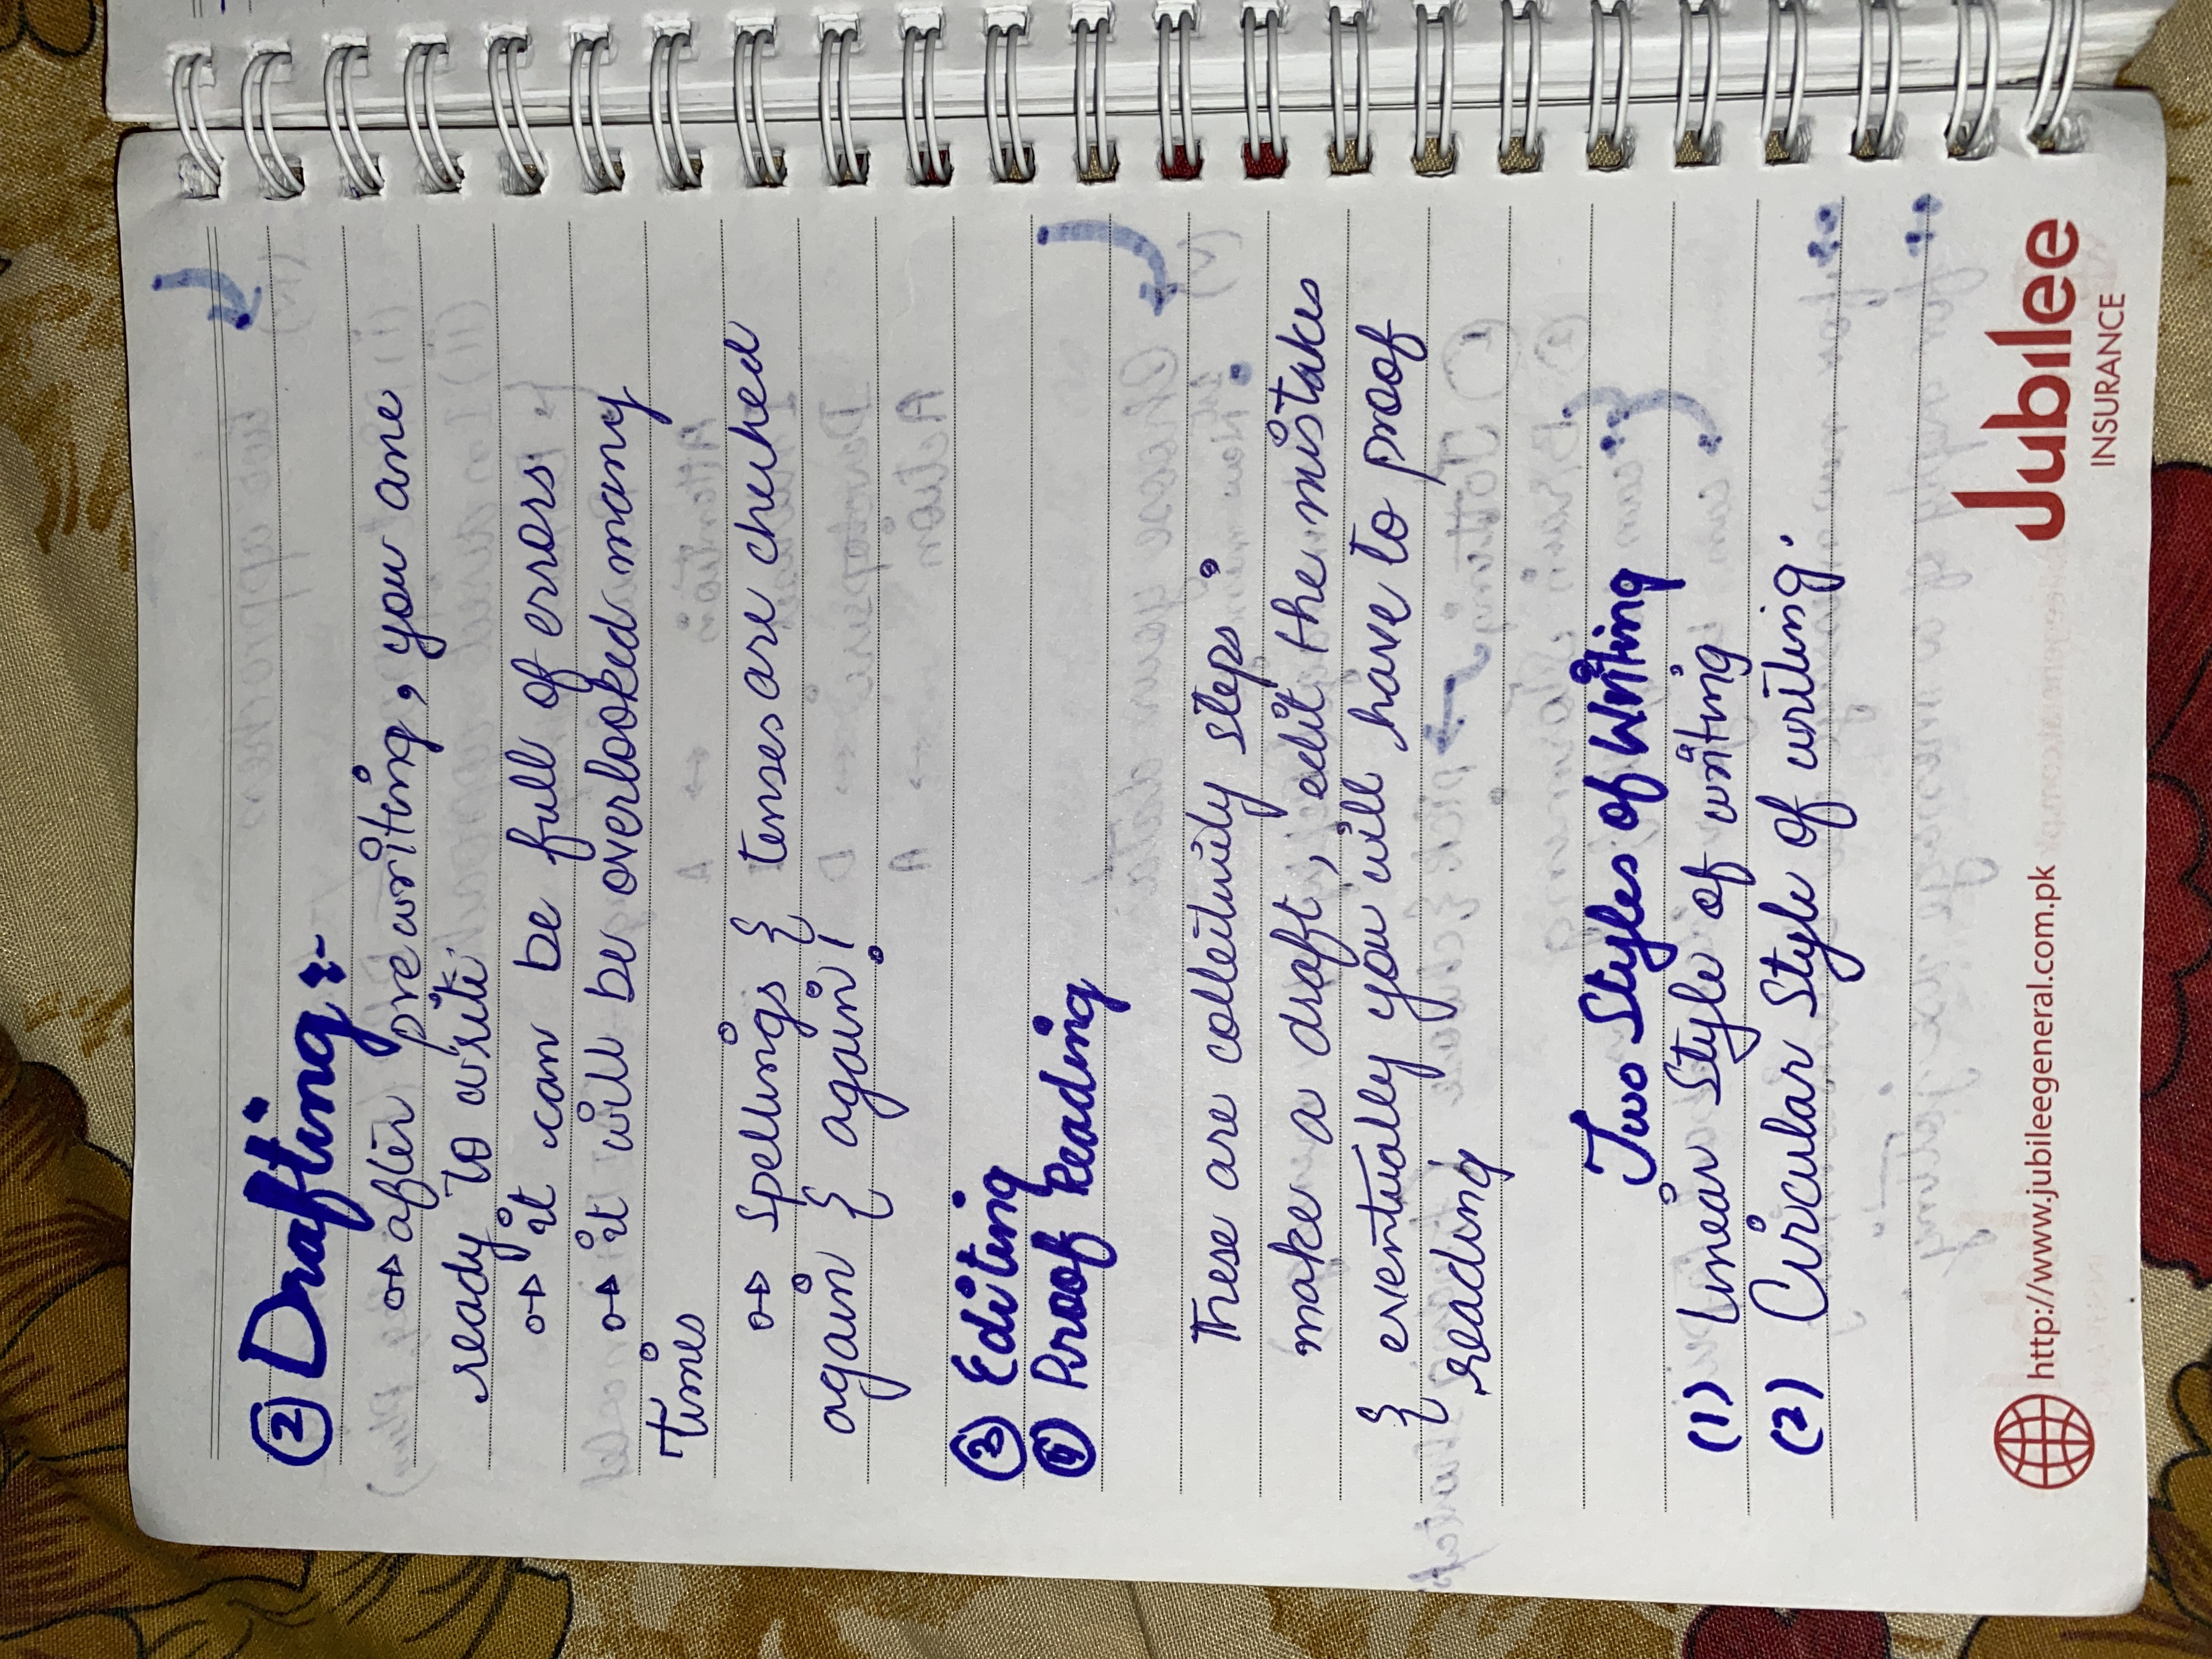 ② Drafting :-
after prewriting, you are
ready to write
it can be full of errors.
it will be overlooked many
times
Spellings & tenses are checked
again & again!
③ Editing
④ Proof Reading
These are collectively steps :
make a draft, edit the mistakes
& eventually you will have to proof
reading
Two Styles of Writing
(1) Linear Style of writing
(2) Circular Style of writing.
http://www.jubileegeneral.com.pk
Jubilee
INSURANCE